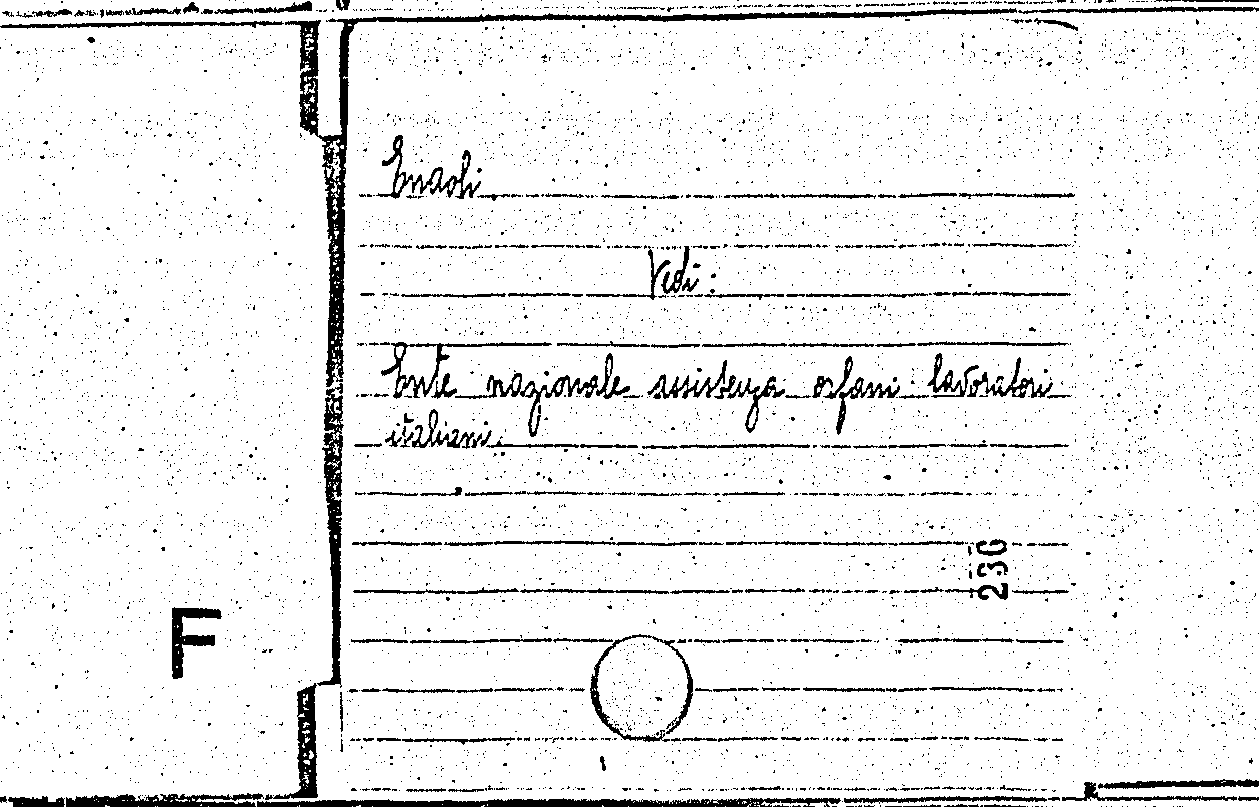 Enaoli
Vedi:
Ente nazionale assistenza orfani lavoratori
italiani.
F